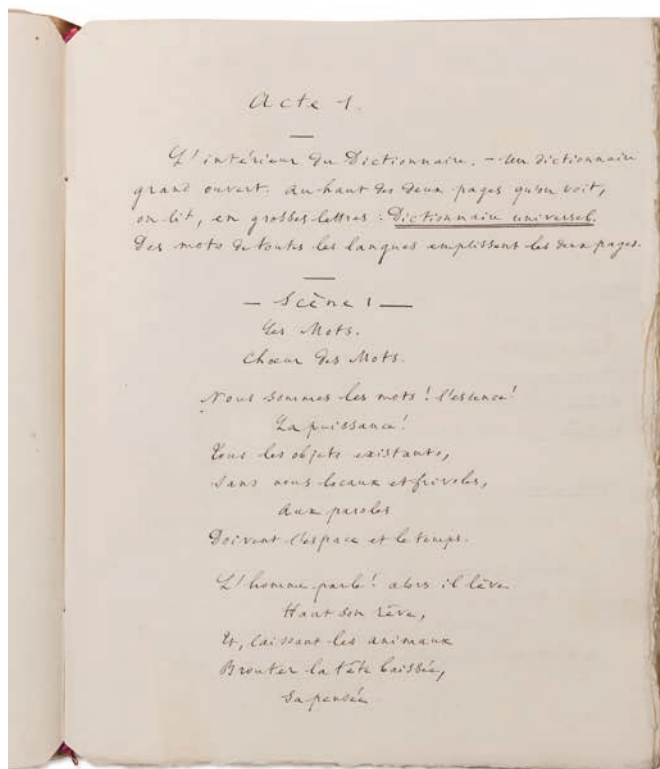 Acte 1.
L'intérieur du Dictionnaire. – Un dictionnaire
grand ouvert. Au haut des deux pages qu'on voit,
on lit, en grosses lettres : Dictionnaire universel.
Des mots de toutes les langues emplissent les deux pages.
– Scène 1 –
Les Mots.
Chœur des Mots.
Nous sommes les mots ! l'essence !
La puissance !
Tous les objets existants,
Sans nous et frivoles,
Aux paroles
Doivent l'espace et le temps.
L'homme parle ! alors il lève
Haut son rêve,
Et, laissant les animaux
Brouter la tête baissée,
Sa pensée